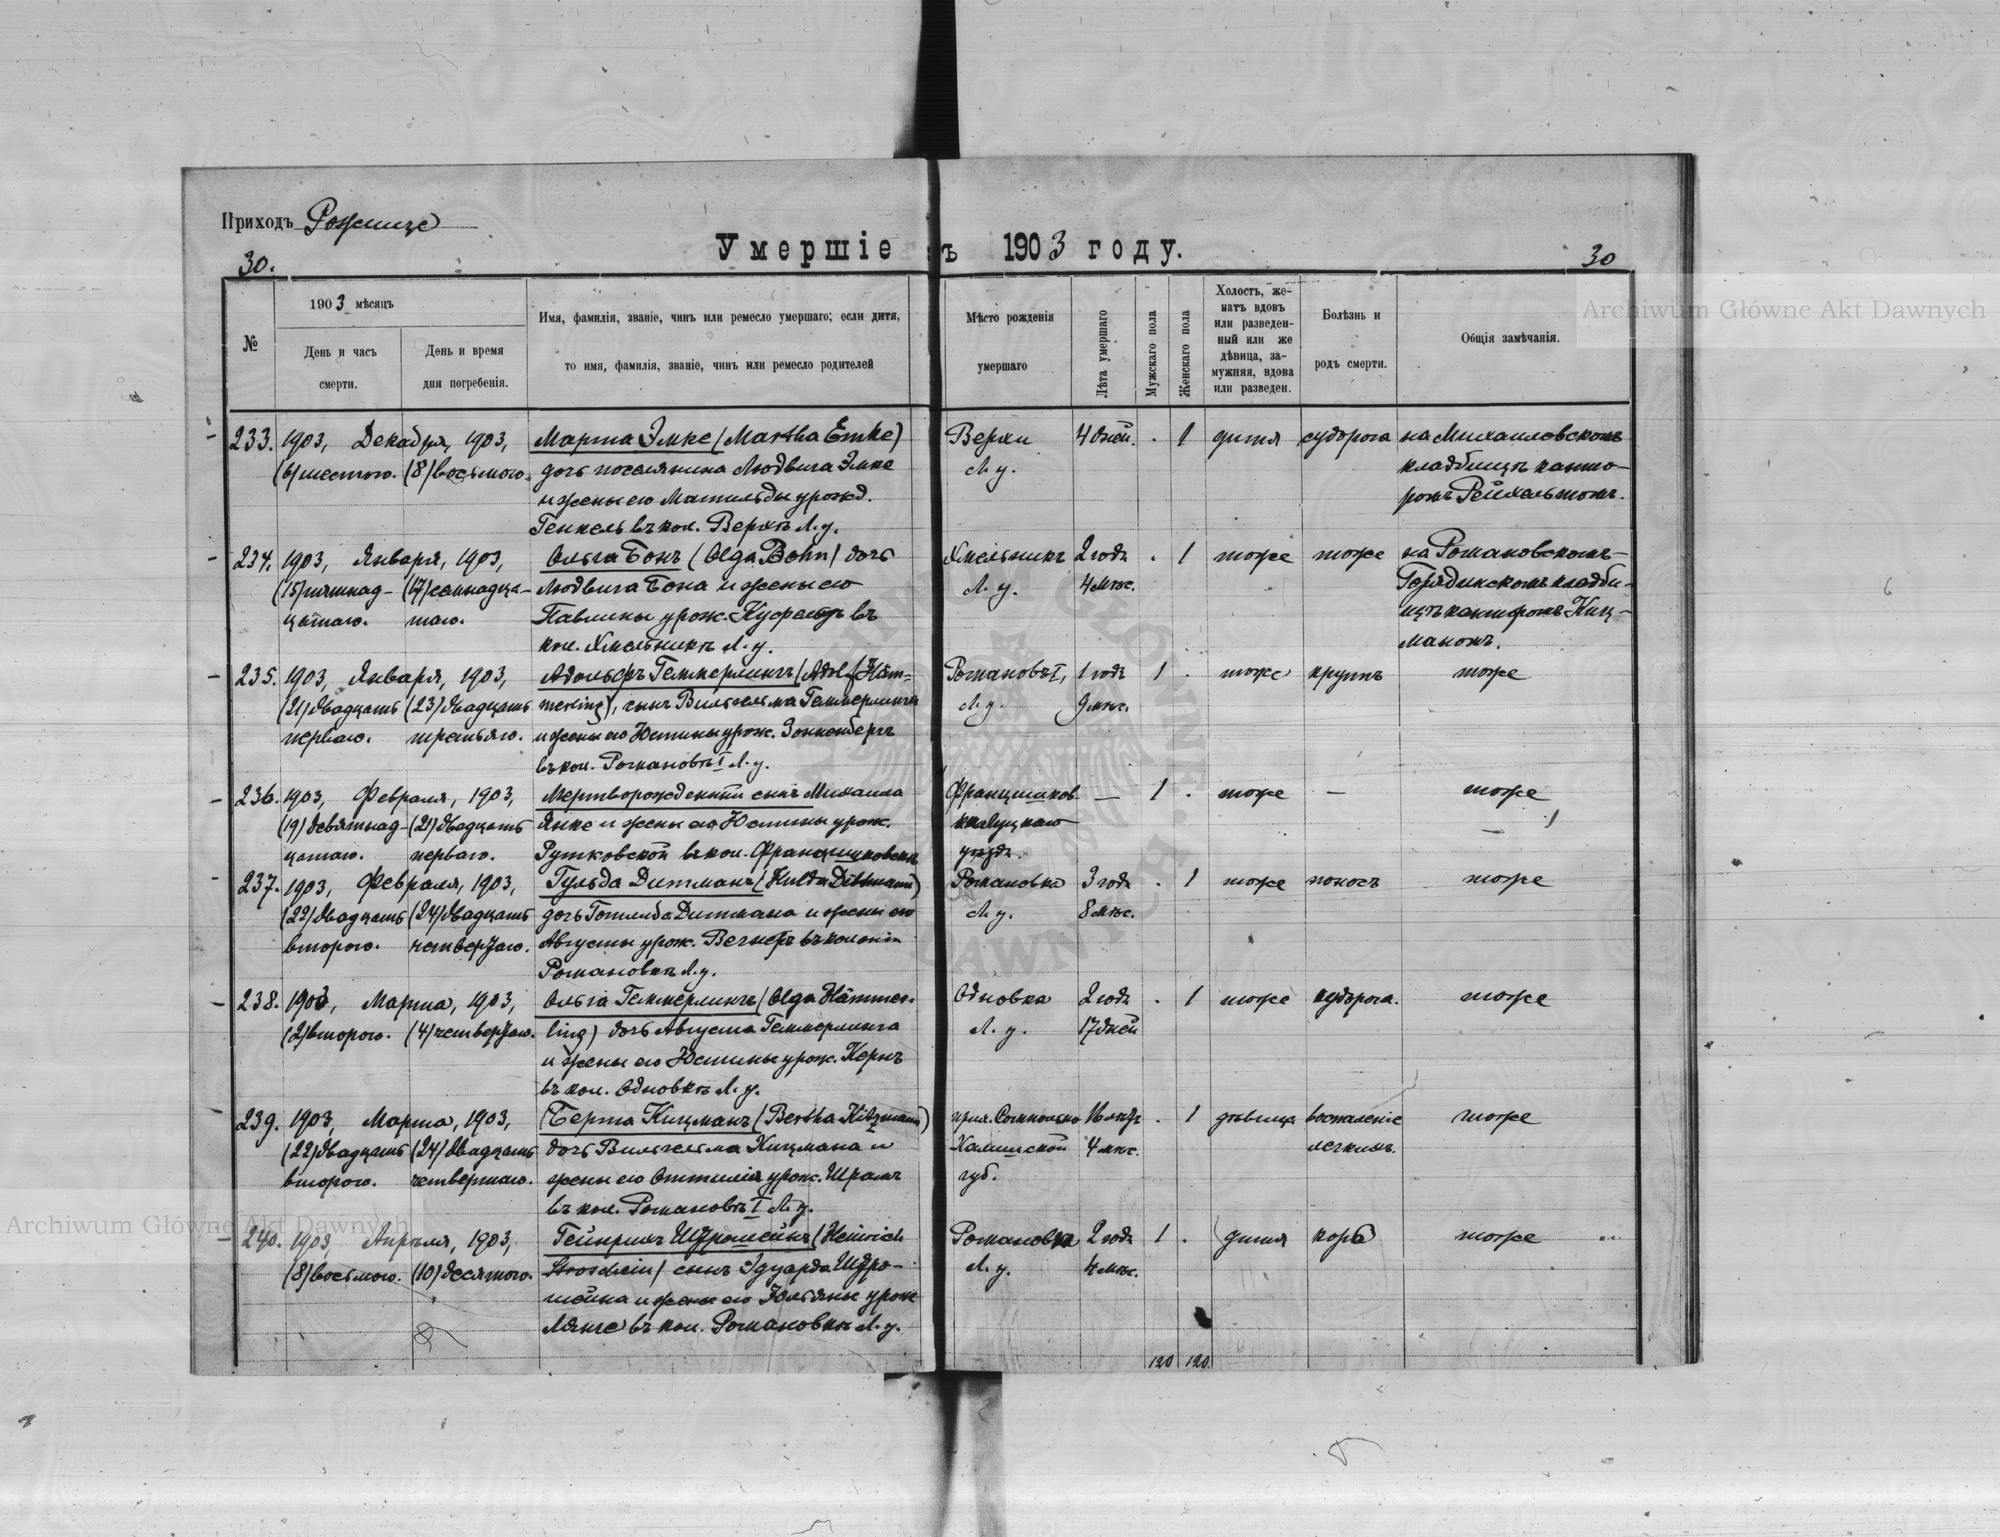 Приходъ Рожище
Умершіе въ 1903 году.
30.
30
№
1903 мѣсяцъ
День и часъ смерти.
День и время дня погребенія.
Имя, фамилія, званіе, чинъ или ремесло умершаго; если дитя,
то имя, фамилія, званіе, чинъ или ремесло родителей
Мѣсто рожденія умершаго
Лѣта умершаго
Мужскаго пола
Женскаго пола
Холостъ, же-
натъ вдовъ
или разведен-
ный или же
дѣвица, за-
мужняя, вдова
или разведен.
Болѣзнь и
родъ смерти.
Общія замѣчанія.
233. 1903, Декабря, 1903, Марта Эмке (Martha Emke) Верхи 4 дней. . 1 дитя судорога на Михаиловскомъ
(6) шестого. (8) восьмого. дочь поселянина Людвига Эмке Л. у. кладбищѣ канто-
и жены его Матильды урожд. ромъ Рейхельтомъ.
Генкель въ кол. Верхѣ Л. у.
234. 1903, Января, 1903, Ольга Бонъ (Olga Bohn) дочь Хмельникъ 2 года . 1 тоже тоже на Романовскомъ-
(15) пятнад- (17) семнадца- Людвига Бона и жены его Л. у. 4 мѣс. кладби-
цатаго. таго. Павлины урож. въ щѣ канторомъ Киц-
кол. Хмельникѣ Л. у. маномъ.
235. 1903, Января, 1903, Адольфъ Геммерлингъ (Adolf Häm- Романовъ I, 1 годъ 1 . тоже крупъ тоже
(21) двадцать (23) двадцать merling), сынъ Вильгельма Геммерлинга Л. у. 9 мѣс.
перваго. третьяго. и жены его Юстины урож. Зонненбергъ
въ кол. Романовъ I Л. у.
236. 1903, Февраля, 1903, Мертворожденный сынъ Михаила Францишков — 1 . тоже — тоже
(19) девятнад- (21) двадцать Янке и жены его Юстины урож. ка Луцкаго
цатаго. перваго. Рутковской въ кол. Францишковкѣ уѣзда.
237. 1903, Февраля, 1903, Гульда Дитманъ (Hulda Dittmann) Романовка 3 года . 1 тоже поносъ тоже
(22) двадцать (24) двадцать дочь Готлиба Дитмана и жены его Л. у. 8 мѣс.
второго. четвертаго. Августы урож. Вегнеръ въ колоніи
Романовкѣ Л. у.
238. 1903, Марта, 1903, Ольга Геммерлингъ (Olga Hämmer- Одновка 2 года . 1 тоже судорога. тоже
(2) второго. (4) четвертаго. ling) дочь Августа Геммерлинга Л. у. 17 дней
и жены его Юстины урож. Кернъ
въ кол. Одновкѣ Л. у.
239. 1903, Марта, 1903, Берта Кицманъ (Bertha Kitzmann) 16 лѣтъ . 1 дѣвица воспаленіе тоже
(22) двадцать (24) двадцать дочь Вильгельма Кицмана и Калишской 4 мѣс. легкихъ.
второго. четвертаго. жены его Оттиліи урож. Шрамъ губ.
въ кол. Романовъ I Л. у.
240. 1903, Апрѣля, 1903, Гейнрихъ Штрошейнъ (Heinrich Романовка 2 года 1 . дитя корь тоже
(8) восьмого. (10) десятого. Stroschein) сынъ Эдуарда Штро- Л. у. 4 мѣс.
шейна и жены его Юльяны урож
Лянге въ кол. Романовкѣ Л. у.
120 120.
Archiwum Główne Akt Dawnych
Archiwum Główne Akt Dawnych